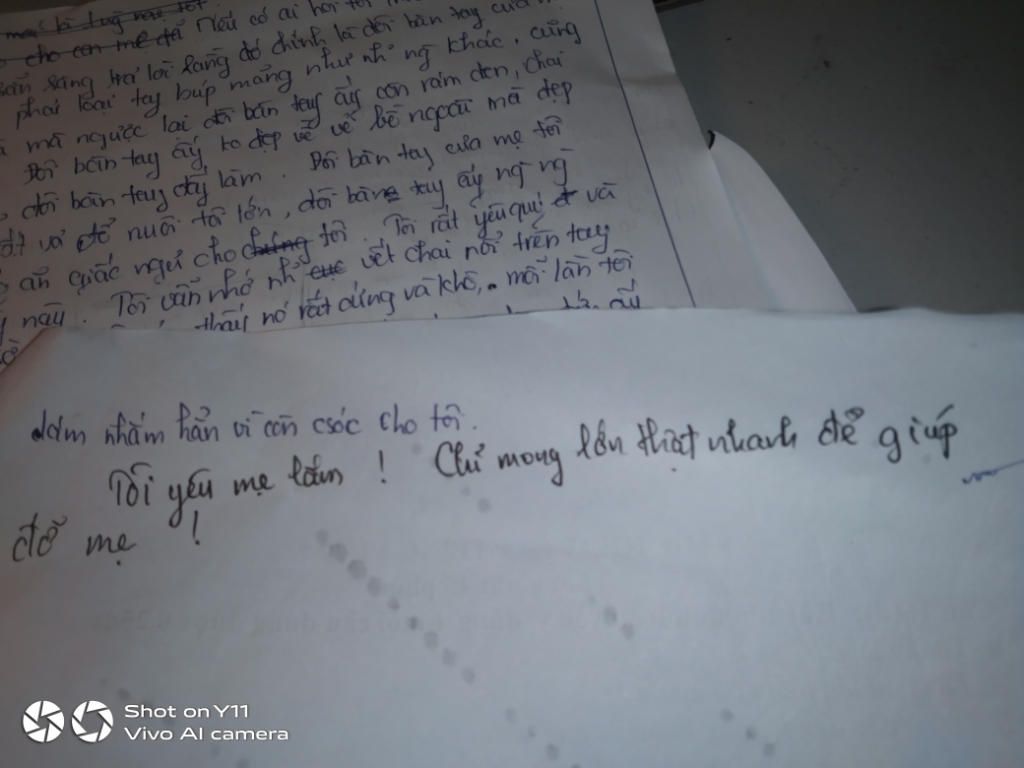 cho con mẹ đã Nếu có ai hỏi tôi
sẵn sàng trả lời rằng đó chính là đôi bàn tay của
phải loại tay búp măng như nh ng khác, cũng
mà ngược lại, đôi bàn tay ấy còn rám đen, chai
Đôi bàn tay ấy ko đẹp về vẻ bề ngoài mà đẹp
đôi bàn tay đấy lắm. Đôi bàn tay của mẹ tôi
vả để nuôi tôi lớn, đôi bàn tay ấy
ăn giấc ngủ cho tôi. Tôi rất yêu quí và
này. Tôi vẫn nhớ như vết chai nổi trên tay
thấy nó rất cứng và khô, mỗi lần tôi
nhăm hẳn vì còn csóc cho tôi.
Tôi yêu mẹ lắm! Chỉ mong lớn thật nhanh để giúp
đỡ mẹ!
Shot on Y11
Vivo AI camera